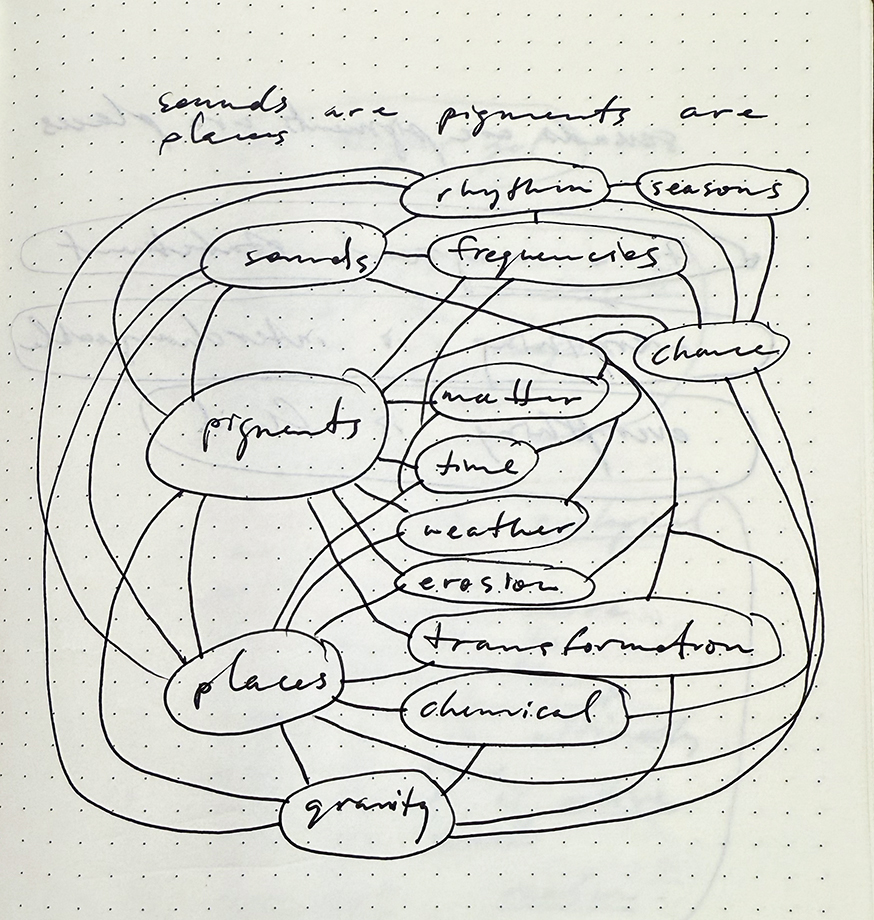 sounds are pigments are
places
rhythm
seasons
sounds
frequencies
chance
matter
pigments
time
weather
erosion
transformation
places
chemical
gravity